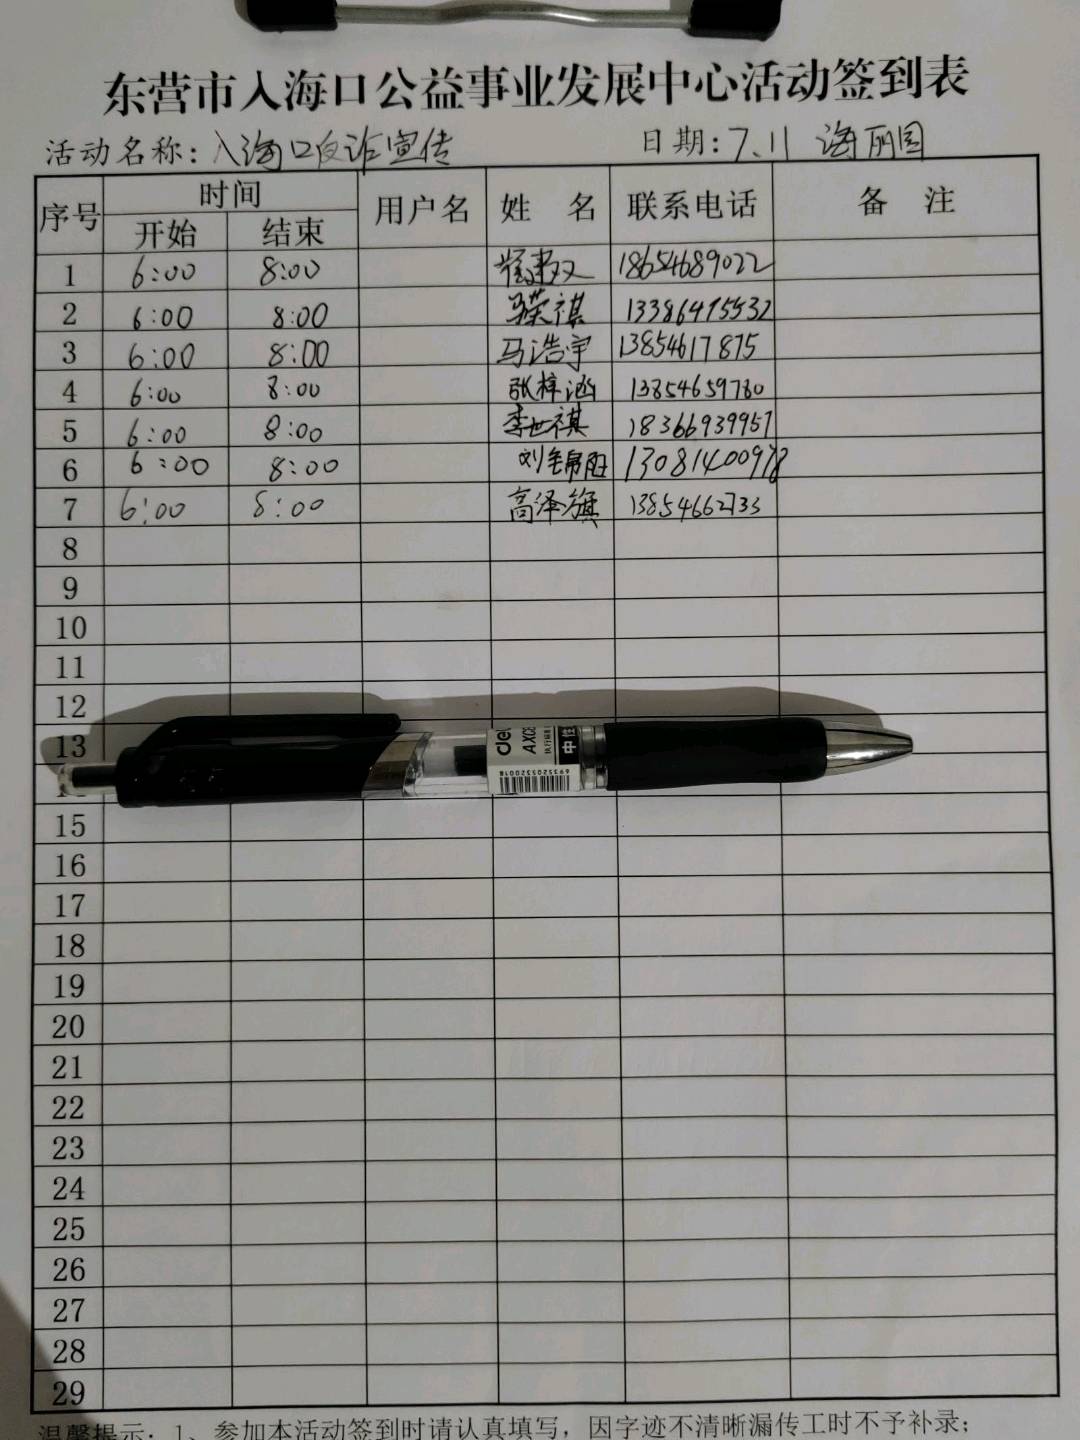 东营市入海口公益事业发展中心活动签到表
活动名称：入海口反诈宣传 日期：7.11 海丽园
序号 时间 用户名 姓 名 联系电话 备 注
开始 结束
1 6:00 8:00 18654689022
2 6:00 8:00 荣祺
3 6:00 8:00 马浩宇 13854617875
4 6:00 8:00 张梓涵 13854659780
5 6:00 8:00 李世祺 18366939957
6 6:00 8:00 刘锦阳
7 6:00 8:00 高泽旗 13854662733
8
9
10
11
12
13
15
16
17
18
19
20
21
22
23
24
25
26
27
28
29
温馨提示：1、参加本活动签到时请认真填写，因字迹不清晰漏传工时不予补录；
6935205320018
中性